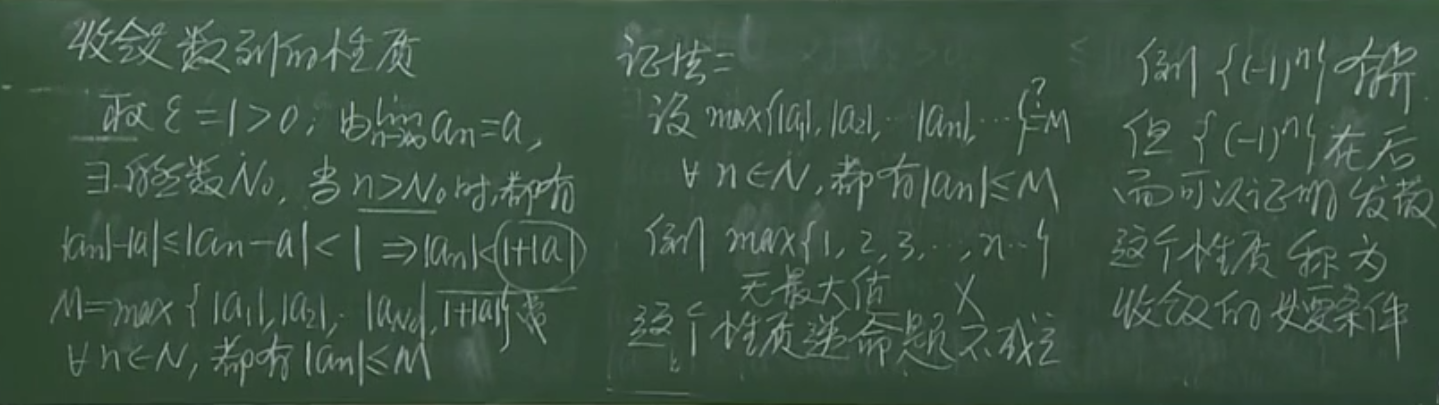 收敛数列的性质
取 ε=1>0, 由 lim n→∞ an=a,
∃正整数N₀, 当n>N₀时,都有
|an|-|a|≤|an-a|<1 ⇒|an|<1+|a|
M=max{|a₁|,|a₂|,…|aN₀|,1+|a|}
∀n∈N, 都有|an|≤M
证法二
设 max{|a₁|,|a₂|,…|an|,…}≟M
∀n∈N, 都有|an|≤M
例 max{1,2,3,…,n…}
无最大值 X
这个性质逆命题不成立
例 {(-1)ⁿ} 有界.
但 {(-1)ⁿ} 在后
面可以证明发散
这个性质称为
收敛的必要条件